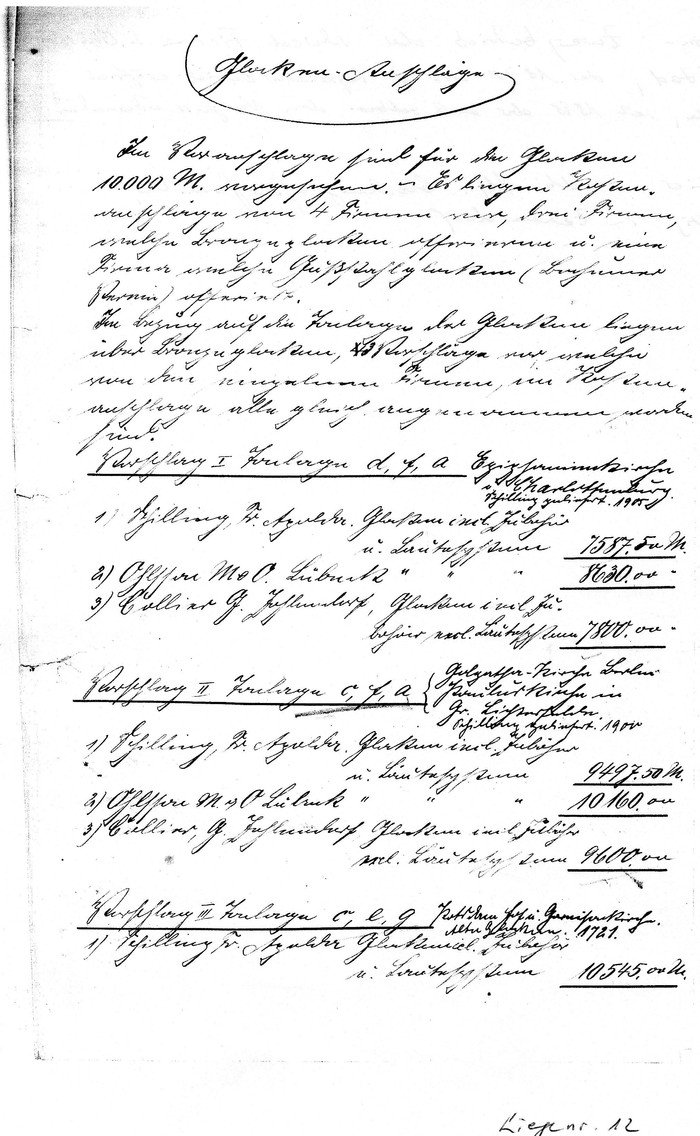 Glocken-Anschläge
Im Voranschlage sind für die Glocken
10.000 M. vorgesehen. - Es liegen Kosten-
anschläge von 4 Firmen vor, drei Firmen,
welche Bronzeglocken offerieren u. eine
Firma welche Gußstahlglocken (Bochumer
Verein) offeriert.
In Bezug auf die Tonlage der Glocken liegen
über Bronzeglocken, 3 Vorschläge vor welche
von den einzelnen Firmen, im Kosten-
anschlage alle gleich angenommen worden
sind.
Vorschlag I Tonlage d, f, a Epiphanienkirche
Charlottenburg.
Schilling geliefert. 1905
1) Schilling, Fr. Apolda. Glocken incl. Zubehör
u. Läutesystem 7587.50 M.
2) Ohlsson M & O. Lübeck " " " 8630.00 "
3) Collier G. Zehlendorf, Glocken incl. Zu-
behör, excl. Läutesystem 7800.00 "
Vorschlag II Tonlage c, f, a Golgatha-Kirche Berlin
Pauluskirche in
Gr. Lichterfelde
Schilling geliefert. 1900
1) Schilling, Fr. Apolda. Glocken incl. Zubehör
u. Läutesystem 9497.50 M.
2) Ohlsson M & O Lübeck " " " 10160.00
3) Collier, G. Zehlendorf Glocken incl. Zubehör
excl. Läutesystem 9600.00
Vorschlag III Tonlage c, e, g Potsdam Hof u. Garnisonkirche.
Alte Glocken. 1721.
1) Schilling Fr. Apolda Glocken incl. Zubehör
u. Läutesystem 10545.00 M.
nr. 12